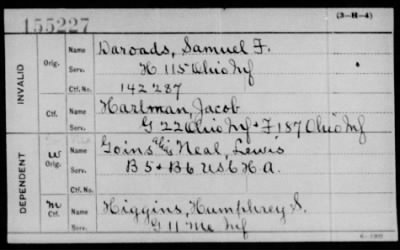 155227
(3-H-4)
INVALID
Orig. Name Daroads, Samuel F.
Serv. H 115 Ohio Inf
Ctf. No. 142287
Ctf. Name Hartman, Jacob
Serv. G 22 Ohio Inf + F 187 Ohio Inf
DEPENDENT
W Orig. Name Goins alias Neal, Lewis
Serv. B 5 + B 6 US C H A.
Ctf. No.
M Ctf. Name Higgins, Humphrey S.
Serv. G 11 Me Inf